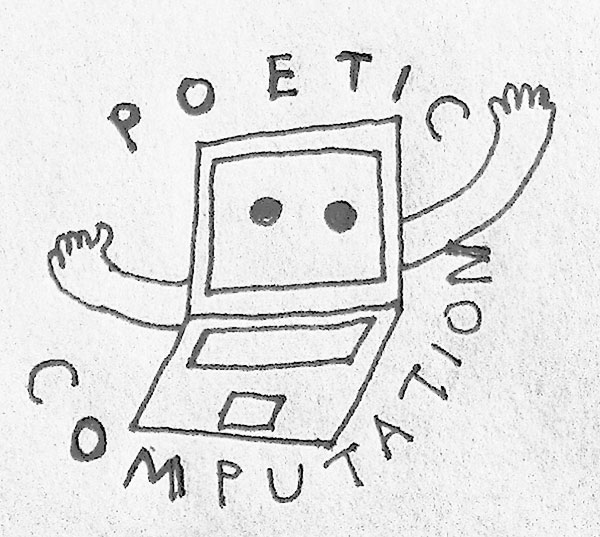 POETIC
COMPUTATION